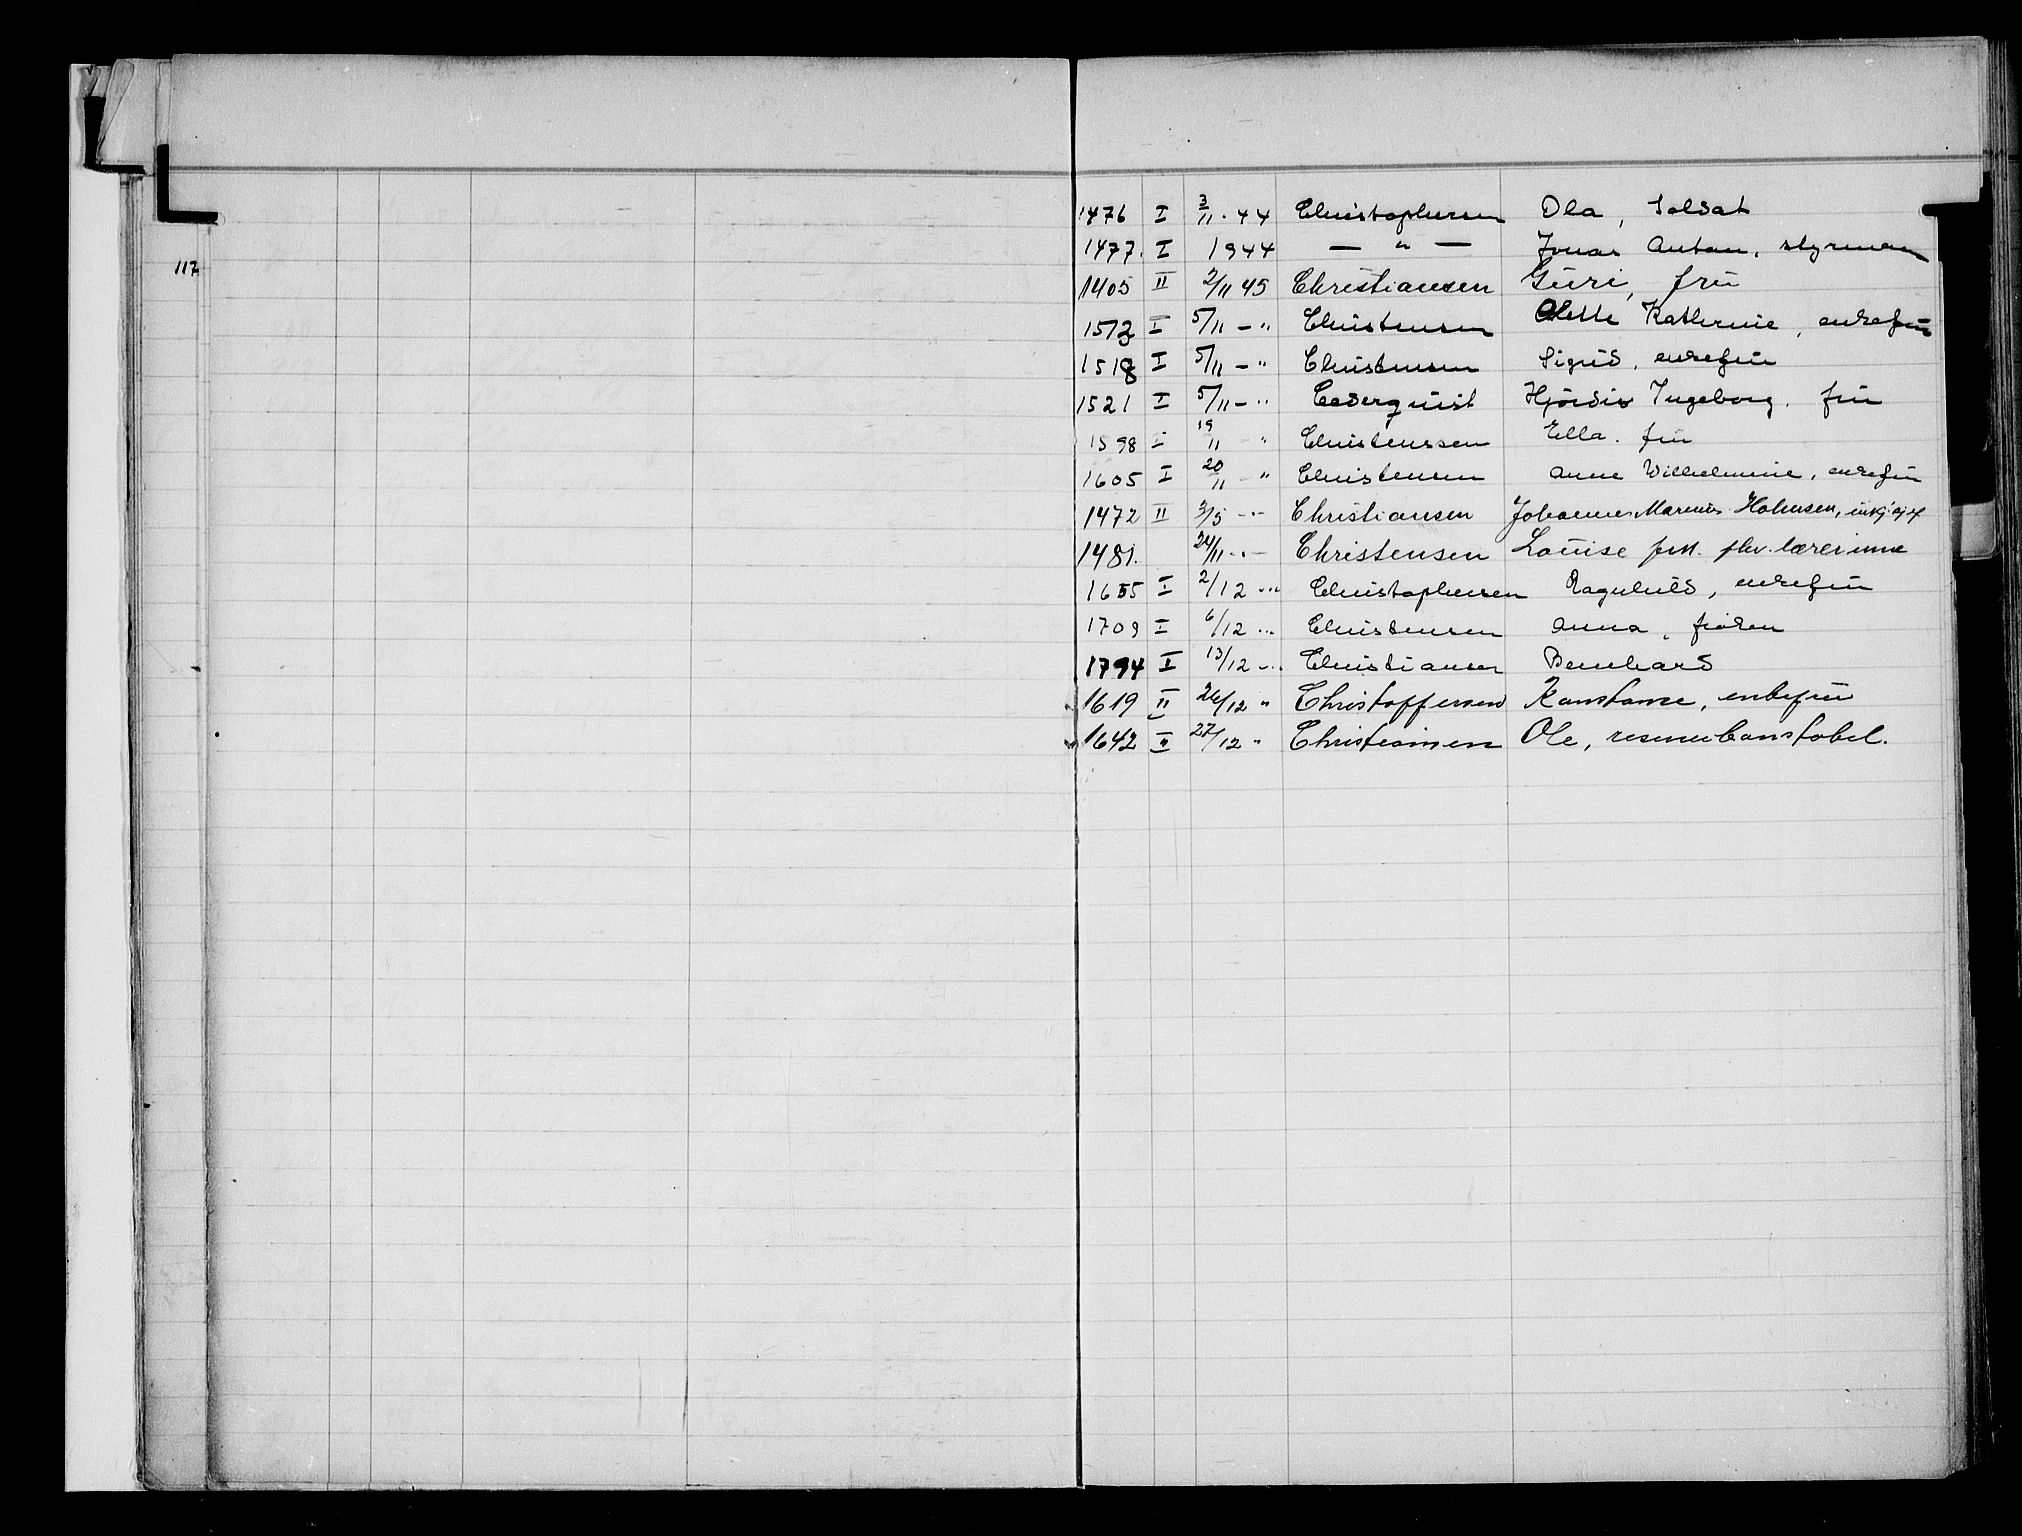 117
1476 I 3/11 . 44 Christophersen Ola, Soldat
1477. I 1944 — " — Jonas Anton, styrman
1405 II 2/11 45 Christiansen Guri, fru
1513 I 5/11 — " Christensen Alette Katherine, enkefru
1518 I 5/11 — " Christensen Sigrid, enkefru
1521 I 5/11 — " Cederquist Hjørdis Ingeborg, fru
1598 I 19/11 — " Christenssen Ella. fru
1605 I 20/11 — " Christensen Anne Wilhelmine, enkefru
1472 II 3/5 — " — Christiansen Johannes Marenius Holmsen,
1481. 24/11 — " — Christensen Louise frk. fhv. lærerinne
1655 I 2/12 — " Christophersen Ragnhild, enkefru
1709 I 6/12 — " Christensen Anna, frøken
1794 I 13/12 — " Christiansen Bernhard
1619 II 26/12 " Christoffersen Konstanse, enkefru
1642 II 27/12 " Christiansen Ole, reservekonstabel.